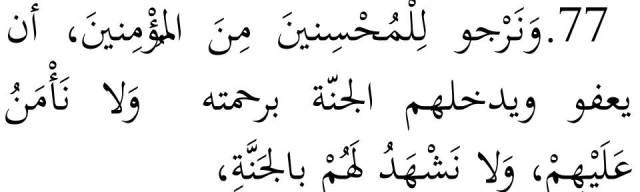 77.وَنَرْجو لِلْمُحْسِنينَ مِنَ المؤْمِنينَ، أن
يعفو ويدخلهم الجنّة برحمته وَلا نَأْمَنُ
عَلَيْهِمْ، وَلا نَشْهَدُ لَهُمْ بالجَنَّةِ،